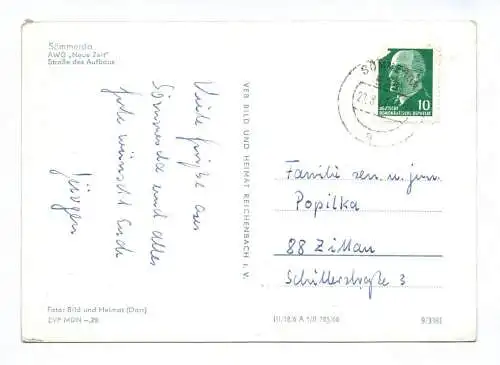 Sömmerda
AWG „Neue Zeit"
Straße des Aufbaus
Viele Grüße aus
Sömmerda und alles
Gute wünscht Euch
Jürgen
VEB BILD UND HEIMAT REICHENBACH I. V.
DEUTSCHE
DEMOKRATISCHE REPUBLIK
10
Familie sen. u. jun.
Popilka
88 Zittau
Schillerstraße 3
Foto: Bild und Heimat (Darr)
EVP MDN –,20